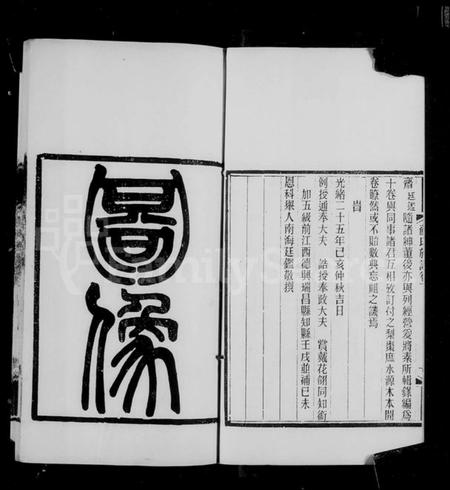 齋廷鑑隨諸紳董後亦與列經營爰將素所輯錄編為
十卷與同事諸君互相攷訂付之梨棗庶水源木本開
卷瞭然或不貽數典忘祖之譏焉
峕
光緒二十五年己亥仲秋吉日
例授通奉大夫 誥授奉政大夫 賞戴花翎同知銜
加五級前江西德興瑞昌縣知縣壬戌並補己未
恩科舉人南海廷鑑敬撰
圖像